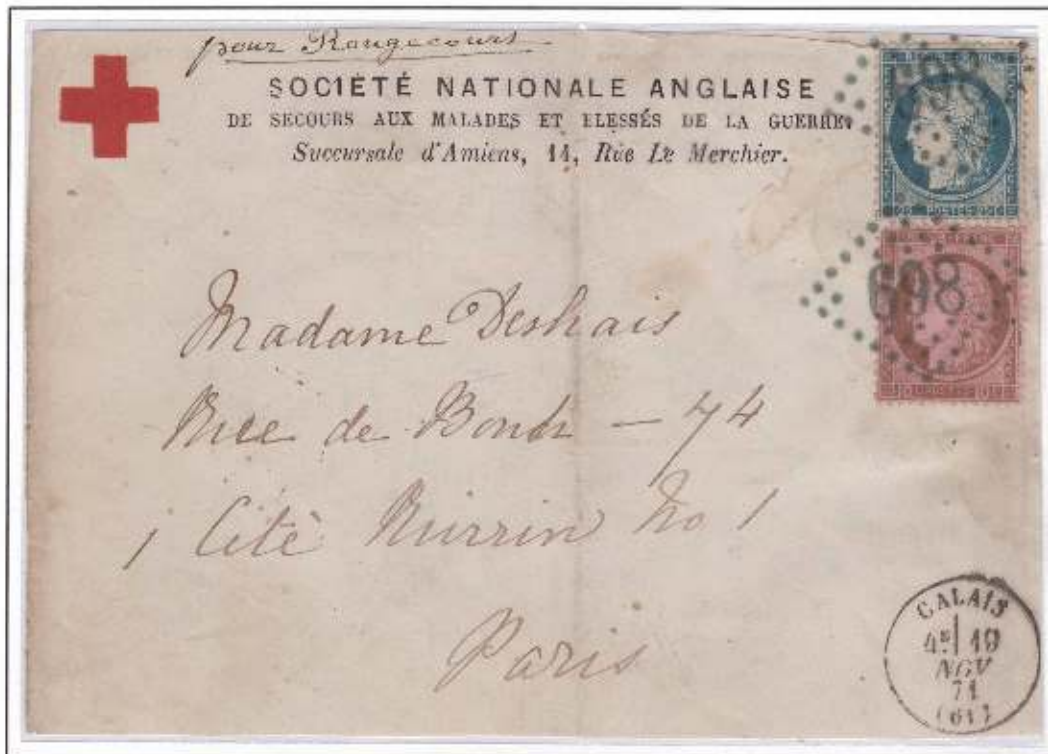 pour Rougecourt
SOCIÉTÉ NATIONALE ANGLAISE
DE SECOURS AUX MALADES ET BLESSÉS DE LA GUERRE.
Succursale d'Amiens, 14, Rue Le Merchier.
698
25 POSTES 25
698
Madame Deshais
Rue de - 74
1 Cité No 1
Paris
CALAIS
4E 19
NOV
71
(61)